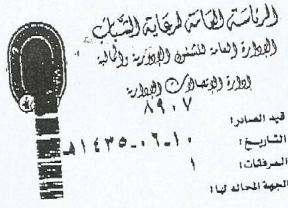 الرئاسة العامة لرعاية الشباب
الإدارة العامة للشئون الإدارية والمالية
إدارة الإتصالات الإدارية
٨٩٠٧
قيد الصادر:
التاريخ: ١٠-٠٦-١٤٣٥هـ
المرفقات: ١
الجهة المحاله لها: